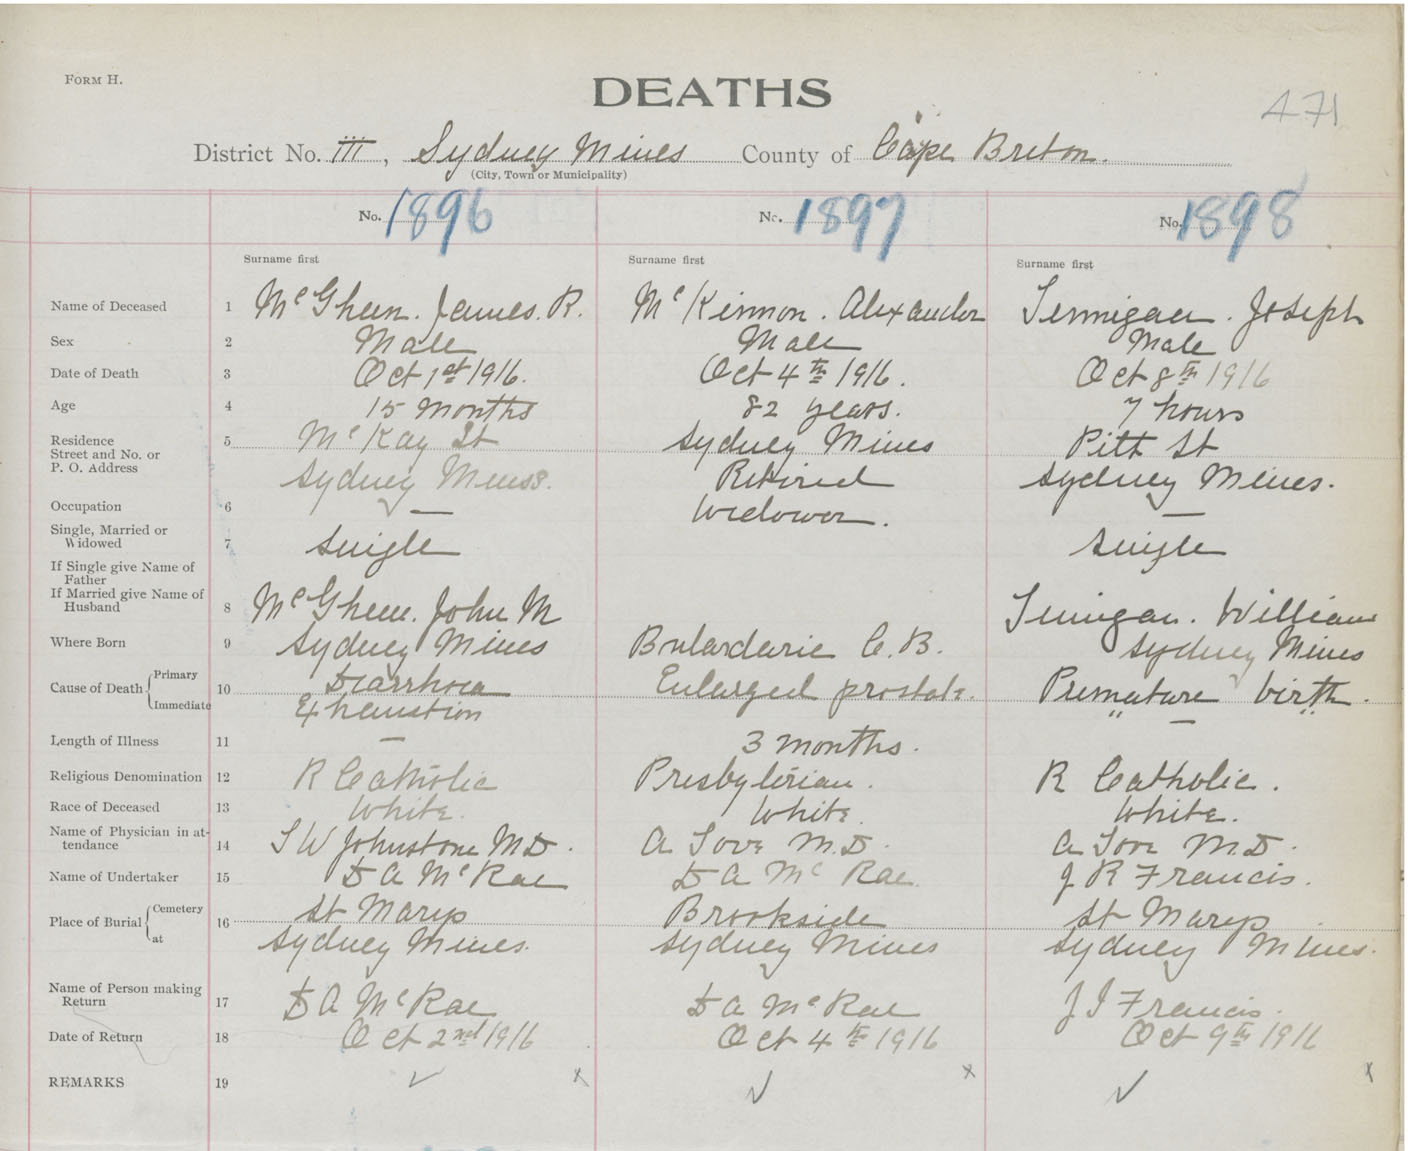 FORM H.
DEATHS
471
District No. III, Sydney Mines County of Cape Breton.
(City, Town or Municipality)
No. 1896 No. 1897 No. 1898
Surname first Surname first Surname first
Name of Deceased 1 McGheen. James. R. McKinnon. Alexander Joseph
Sex 2 Male Male Male
Date of Death 3 Oct 1st 1916. Oct 4th 1916. Oct 8th 1916
Age 4 15 months 82 years. 7 hours
Residence
Street and No. or
P. O. Address
5 McKay St Sydney Mines Pitt St
Sydney Mines. Retired Sydney Mines.
Occupation 6 — Widower. —
Single, Married or
Widowed
7 Single Single
If Single give Name of
Father
If Married give Name of
Husband
8 John M William
Where Born 9 Sydney Mines Bularderie C. B. Sydney Mines
Cause of Death Primary 10 Diarrhoea Enlarged prostate. Premature birth.
Immediate Exhaustion " — "
Length of Illness 11 — 3 months.
Religious Denomination 12 R Catholic Presbyterian. R Catholic.
Race of Deceased 13 White. White. White.
Name of Physician in at-
tendance
14 Johnstone MD. A Love M.D. A Love M.D.
Name of Undertaker 15 D A McRae D A McRae. J R Francis.
Place of Burial Cemetery 16 St Marys Brookside St Marys
at Sydney Mines. Sydney Mines Sydney Mines.
Name of Person making
Return
17 D A McRae D A McRae Francis.
Date of Return 18 Oct 2nd 1916 Oct 4th 1916 Oct 9th 1916
REMARKS 19 ✓ x ✓ x ✓ x